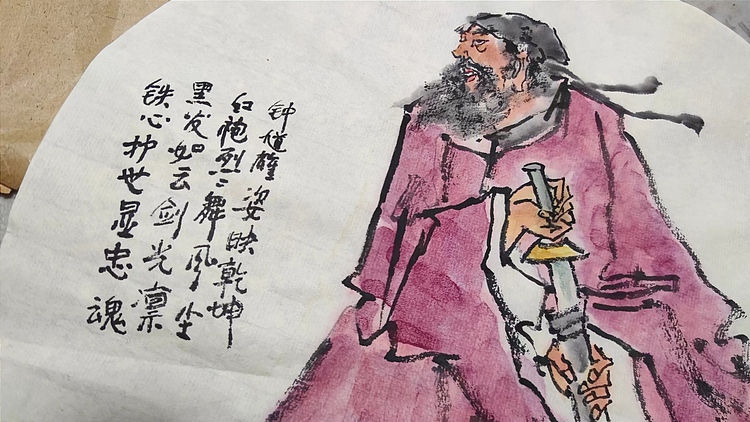 钟馗雄姿映乾坤
红袍烈々舞风尘
黑发如云剑光凛
铁心护世显忠魂